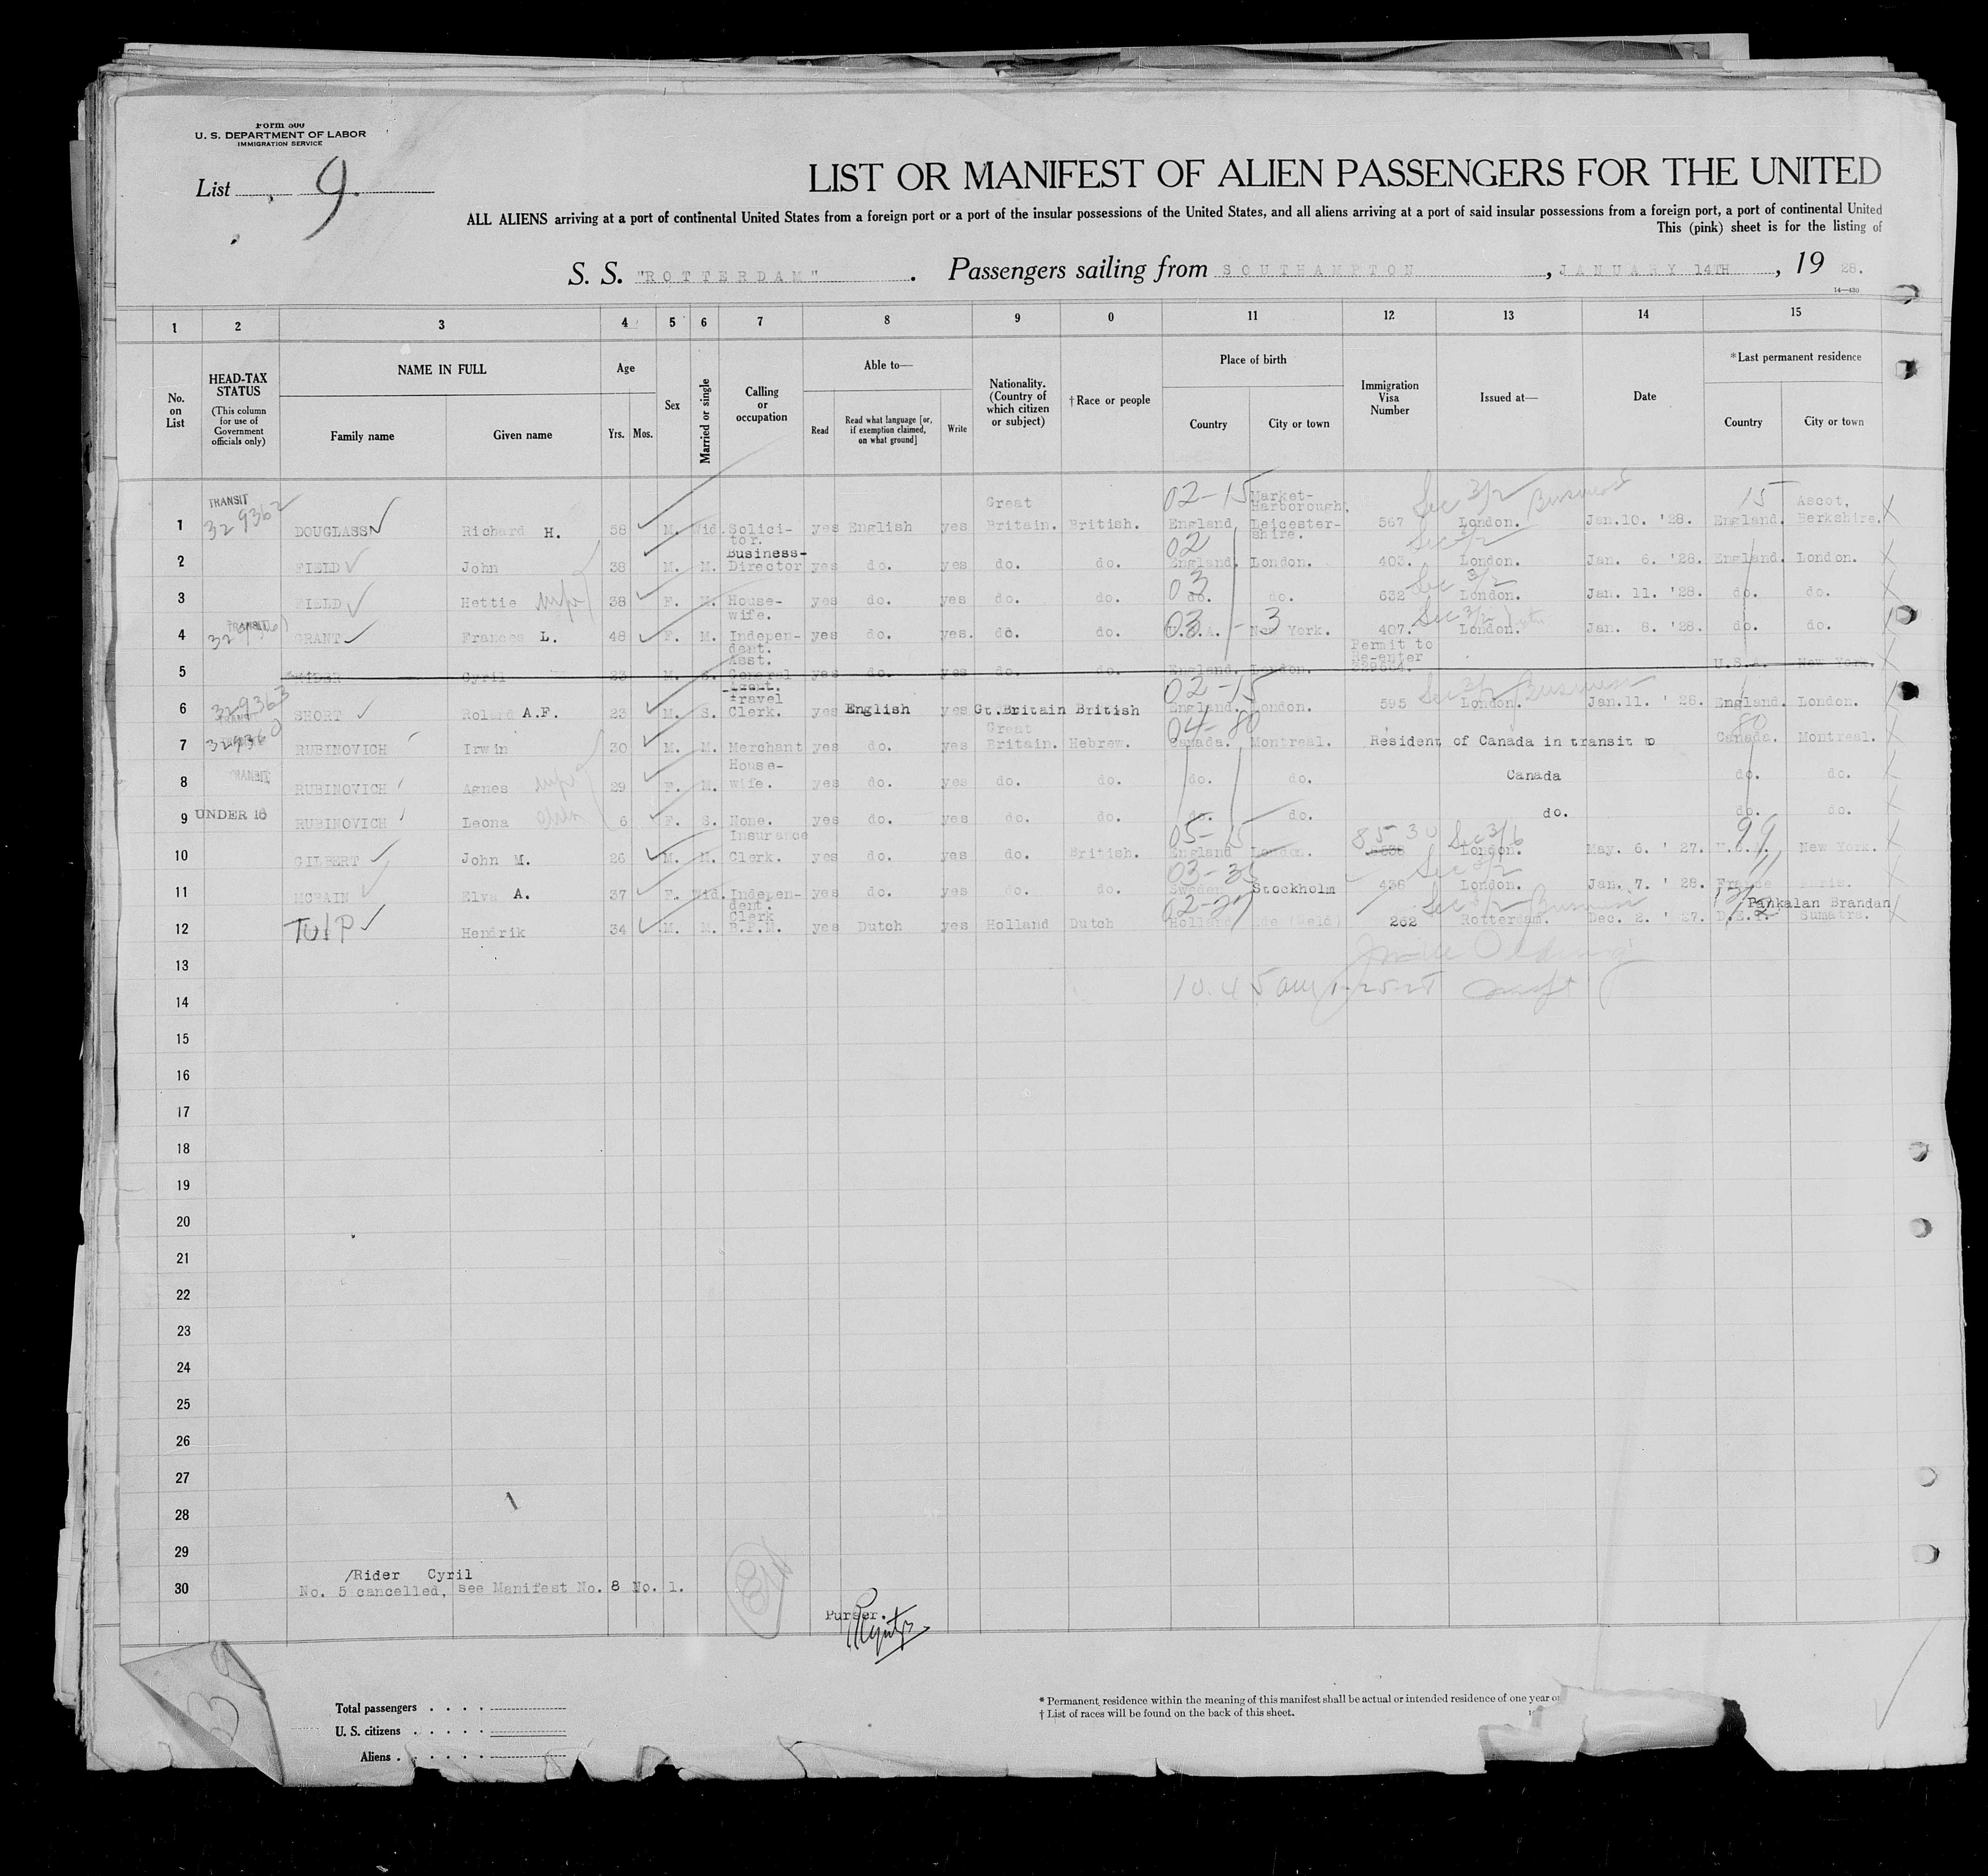 Form 500
U. S. DEPARTMENT OF LABOR
IMMIGRATION SERVICE
List 9.
LIST OR MANIFEST OF ALIEN PASSENGERS FOR THE UNITED
ALL ALIENS arriving at a port of continental United States from a foreign port or a port of the insular possessions of the United States, and all aliens arriving at a port of said insular possessions from a foreign port, a port of continental United
This (pink) sheet is for the listing of
S. S. "ROTTERDAM". Passengers sailing from SOUTHAMPTON, JANUARY 14TH, 19 28.
14—430
1 2 3 4 5 6 7 8 9 0 11 12 13 14 15
No. on List
HEAD-TAX STATUS (This column for use of Government officials only)
NAME IN FULL Family name Given name
Age Yrs. Mos.
Sex
Married or single
Calling or occupation
Able to— Read Read what language [or, if exemption claimed, on what ground] Write
Nationality. (Country of which citizen or subject)
† Race or people
Place of birth Country City or town
Immigration Visa Number
Issued at—
Date
*Last permanent residence Country City or town
1 TRANSIT 329362 DOUGLASS Richard H. 58 M. Wid. Solicitor. yes English yes Great Britain. British. 02-15 England Market-Harborough, Leicester-shire. 567 Sec 3/2 Business London. Jan.10. '28. 15 England. Ascot, Berkshire.
2 FIELD John 38 M. M. Business-Director yes do. yes do. do. 02 England. London. 403. Sec 3/2 London. Jan. 6. '28. England. London.
3 FIELD Hettie wife 38 F. M. House-wife. yes do. yes do. do. 03 do. do. 632 Sec 3/2 London. Jan. 11. '28. do. do.
4 TRANSIT GRANT Frances L. 48 F. M. Indepen-dent. yes do. yes. do. do. 03-3 U.S.A. New York. 407. Sec 3/2 London. Jan. 8. '28. do. do.
5 RIDER Cyril 23 M. S. Asst. General Agent. yes do. yes do. do. England. London. Permit to Re-enter U.S.A. New York.
6 329363 TRANSIT SHORT Roland A.F. 23 M. S. travel Clerk. yes English yes Gt.Britain British 02-15 England. London. 595 Sec 3/2 Business London. Jan.11. '28. England. London.
7 329360 RUBINOVICH Irwin 30 M. M. Merchant yes do. yes Great Britain. Hebrew. 04-80 Canada. Montreal. Resident of Canada in transit to 80 Canada. Montreal.
8 TRANSIT RUBINOVICH Agnes wife 29 F. M. House-wife. yes do. yes do. do. do. do. Canada do. do.
9 UNDER 16 RUBINOVICH Leona 6 F. S. None. yes do. yes do. do. do. do. do. do. do.
10 GILBERT John M. 26 M. M. Insurance Clerk. yes do. yes do. British. 05-15 England London. 8530 Sec 3/6 London. May. 6. '27. 99 U.S.A. New York.
11 MCBAIN Elva A. 37 F. Wid. Indepen-dent. yes do. yes do. do. 03-35 Sweden Stockholm 436 Sec 3/2 London. Jan. 7. '28. France Paris.
12 TULP Hendrik 34 M. M. Clerk B.P.M. yes Dutch yes Holland Dutch Holland Ede (Geld) 262 Sec 3/2 Business Rotterdam. Dec. 2. '27. D.E.I. Pankalan Brandan Sumatra.
13
14 10.45 am 1-25-28
15
16
17
18
19
20
21
22
23
24
25
26
27
28
29
/Rider Cyril
30 No. 5 cancelled, see Manifest No. 8 No. 1.
Purser.
Total passengers
U. S. citizens
Aliens
* Permanent residence within the meaning of this manifest shall be actual or intended residence of one year or
† List of races will be found on the back of this sheet.